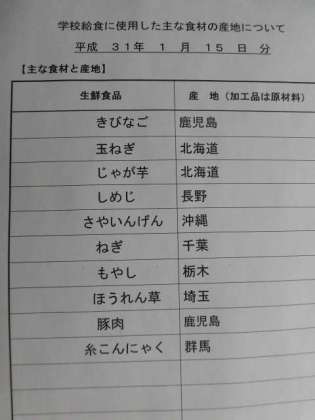 学校給食に使用した主な食材の産地について
平成 31年 1 月 15 日 分
【主な食材と産地】
生鮮食品 産 地（加工品は原材料）
きびなご 鹿児島
玉ねぎ 北海道
じゃが芋 北海道
しめじ 長野
さやいんげん 沖縄
ねぎ 千葉
もやし 栃木
ほうれん草 埼玉
豚肉 鹿児島
糸こんにゃく 群馬